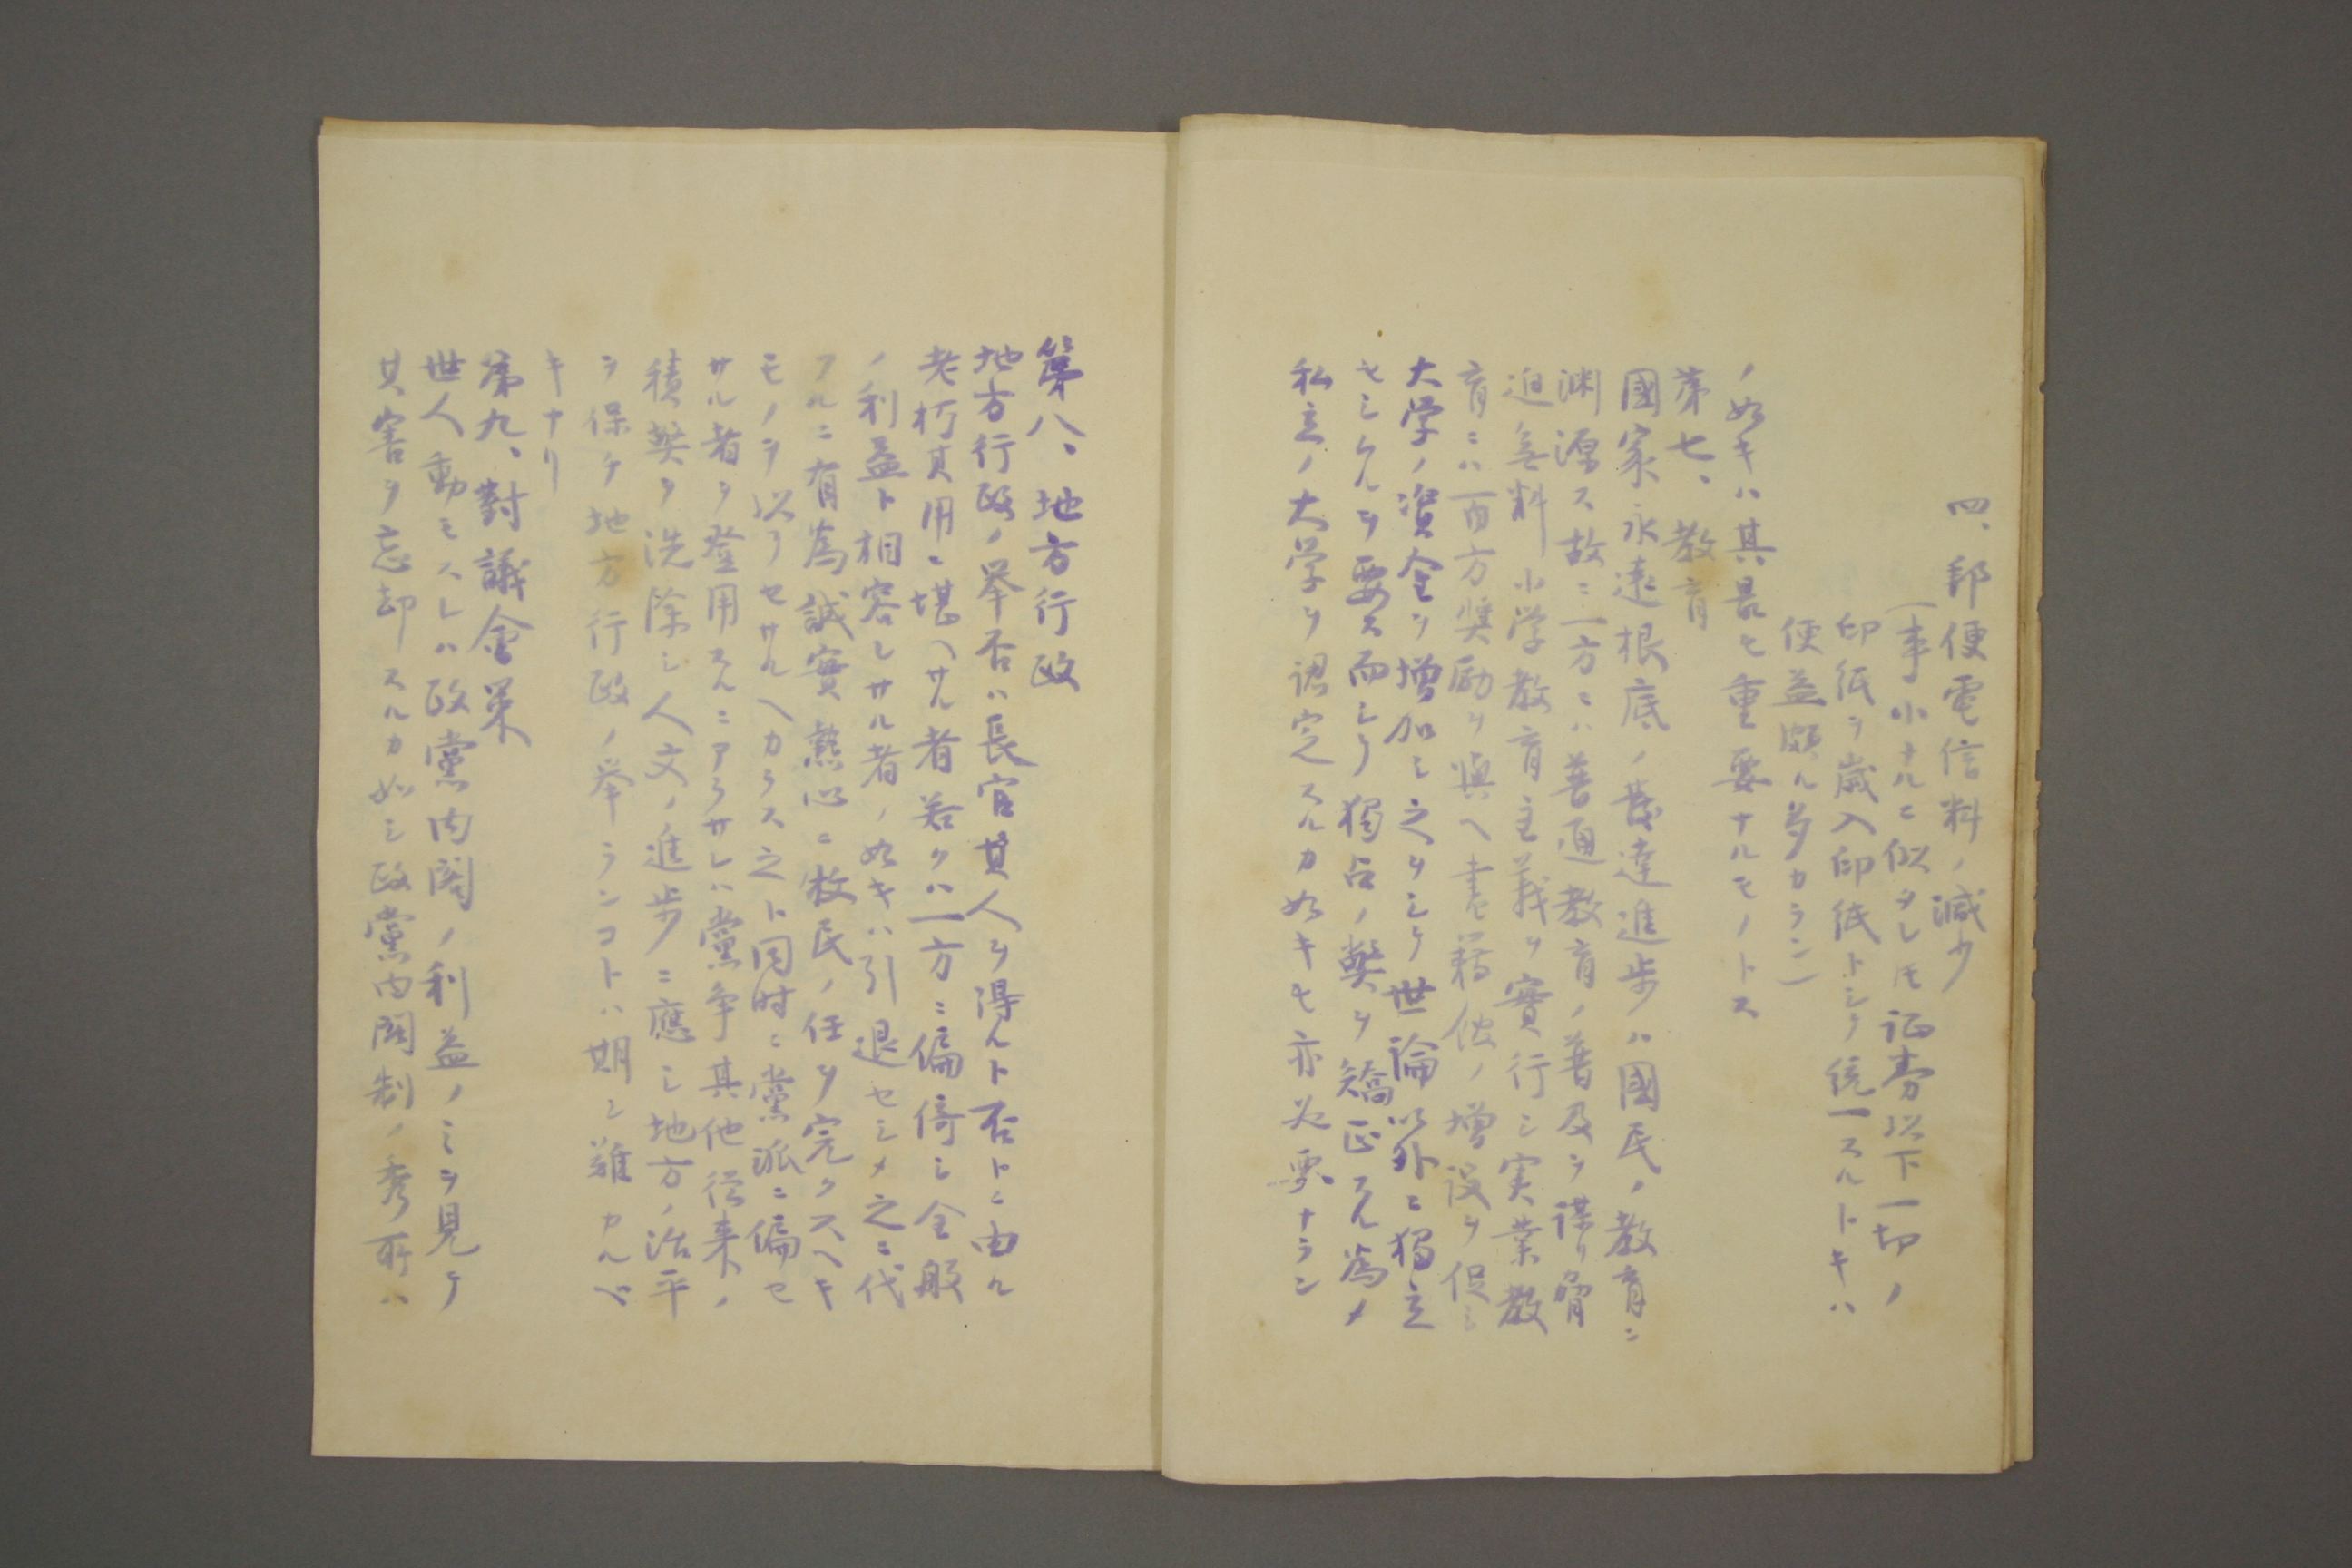 四、郵便電信料ノ減少
(事小ナルニ似タレトモ証劵以下一切ノ
印紙ヲ歳入印紙トシテ統一スルトキハ
便益頗ル多カラン)
ノ如キハ其最モ重要ナルモノトス
第七、教育
國家永遠根底ノ發達進歩ハ國民ノ教育ニ
淵源ス故ニ一方ニハ普通教育ノ普及ヲ謀リ
迫無料小学教育主義ヲ實行シ実業教
育ニハ百方奬励ヲ與ヘ書籍舘ノ増設ヲ促シ
大学ノ資金ヲ増加シ之ヲシテ世論以外ニ獨立
セシムルヲ要ス而シテ獨占ノ弊ヲ矯正スル為メ
私立ノ大学ヲ認定スルカ如キモ亦必要ナラン
第八、地方行政
地方行政ノ挙否ハ長官其人ヲ得ルト否トニ由ル
老朽其用ニ堪ヘサル者若クハ一方ニ偏倚シ全般
ノ利益ト相容レサル者ノ如キハ引退セシメ之ニ代
フルニ有為誠實熱心ニ牧民ノ任ヲ完クスヘキ
モノヲ以テセサルヘカラス之ト同時ニ黨派ニ偏セ
サル者ヲ登用スルニアラサレハ黨争其他従来ノ
積弊ヲ洗除シ人文ノ進歩ニ應シ地方ノ治平
ヲ保チ地方行政ノ挙ランコトハ期シ難カルベ
キナリ
第九、對議會策
世人動モスレハ政黨内閣ノ利益ノミヲ見テ
其害ヲ忘却スルカ如シ政黨内閣制ノ秀所ハ